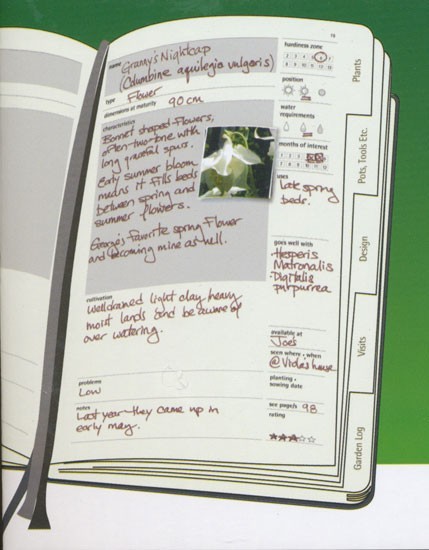 19
name Granny's Nightcap
(Columbine aquilegia vulgaris)
type Flower
dimensions at maturity 90 cm
characteristics
Bonnet shaped flowers,
often two-tone with
long graceful spurs.
Early summer bloom
means it fills beds
between spring and
summer flowers.
George's favorite spring flower
and becoming mine as well.
cultivation
Welldrained light clay, heavy
moist lands and be aware of
over watering.
problems
Low
notes
Last year they came up in
early may.
hardiness zone
1 2 3 4 5 6
7 8 9 10 11 12
position
water
requirements
months of interest
uses
late spring
beds.
goes well with
Hesperis
Matronalis
Digitalis
purpurea
available at
Joe's
seen where + when
@ Viola's house
planting +
sowing date
see page/s 98
rating
Plants
Pots, Tools Etc.
Design
Visits
Garden Log